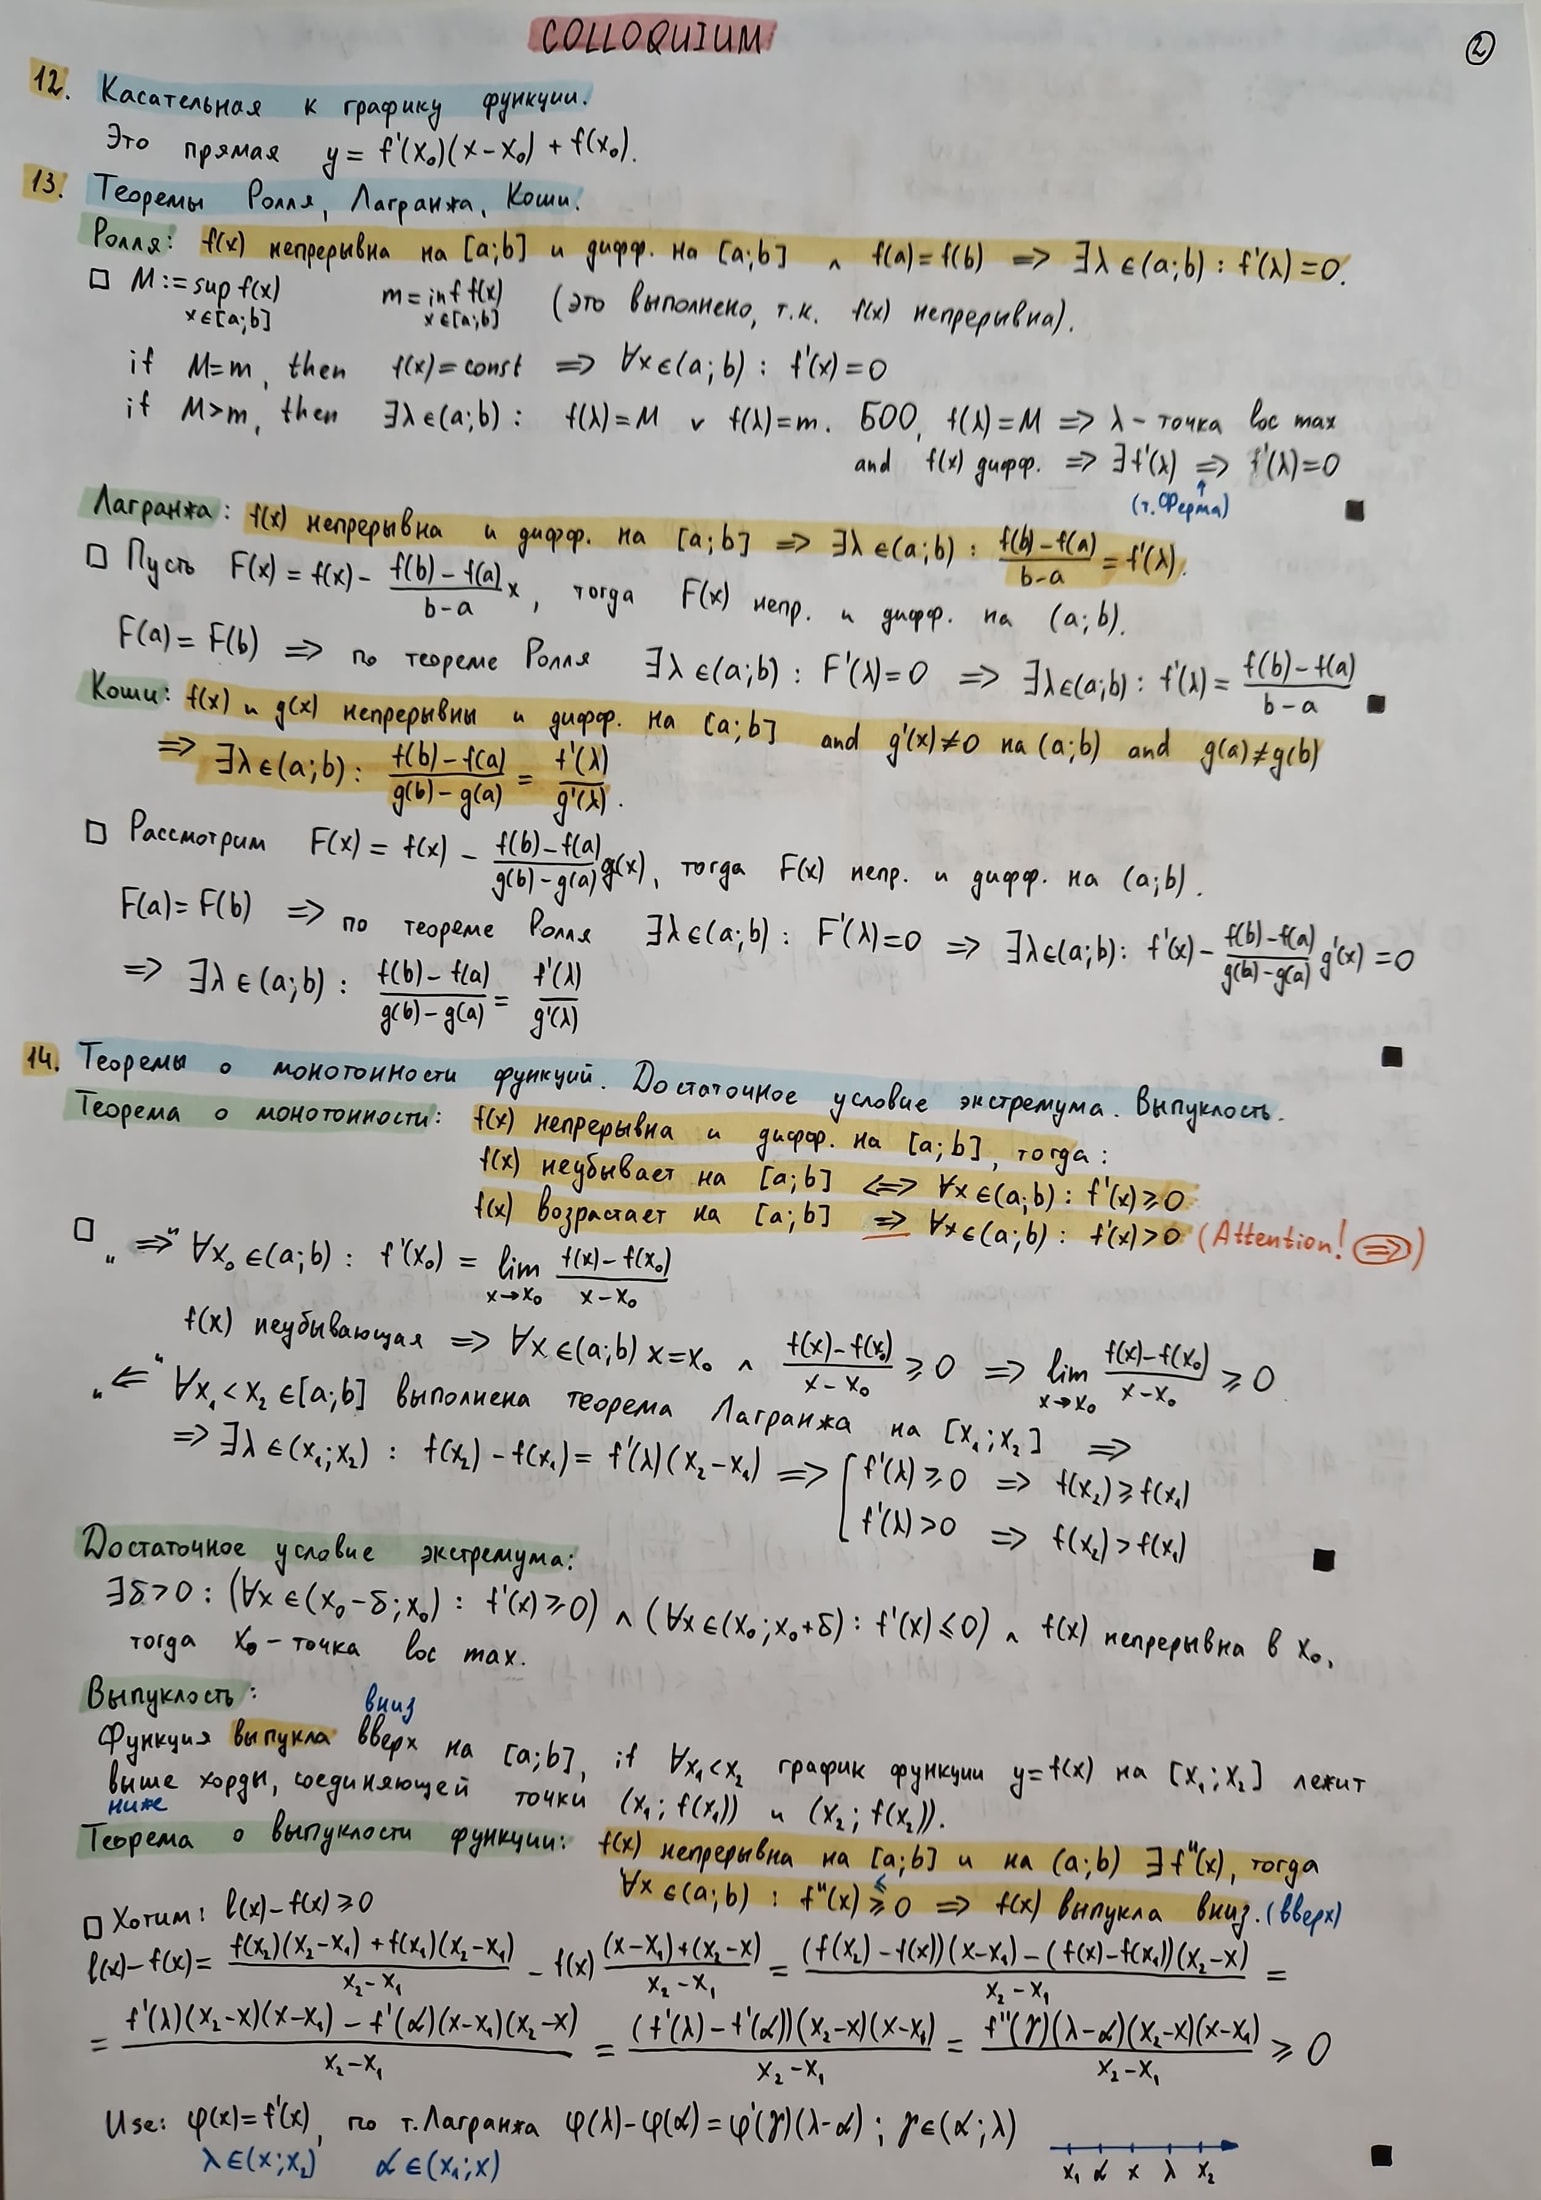 COLLOQUIUM
②
12. Касательная к графику функции.
Это прямая y = f'(x₀)(x−x₀) + f(x₀).
13. Теоремы Ролля, Лагранжа, Коши.
Ролля: f(x) непрерывна на [a;b] и дифф. на [a;b] ∧ f(a)=f(b) ⇒ ∃λ∈(a;b): f'(λ)=0.
□ M:= sup f(x) m = inf f(x) (это выполнено, т.к. f(x) непрерывна).
x∈[a;b] x∈[a;b]
if M=m, then f(x)=const ⇒ ∀x∈(a;b): f'(x)=0
if M>m, then ∃λ∈(a;b): f(λ)=M ∨ f(λ)=m. БОО, f(λ)=M ⇒ λ – точка loc max
and f(x) дифф. ⇒ ∃f'(λ) ⇒ f'(λ)=0
↑
(т. Ферма) ■
Лагранжа: f(x) непрерывна и дифф. на [a;b] ⇒ ∃λ∈(a;b): (f(b)−f(a))/(b−a) = f'(λ).
□ Пусть F(x) = f(x) − (f(b)−f(a))/(b−a) x, тогда F(x) непр. и дифф. на (a;b).
F(a)=F(b) ⇒ по теореме Ролля ∃λ∈(a;b): F'(λ)=0 ⇒ ∃λ∈(a;b): f'(λ) = (f(b)−f(a))/(b−a) ■
Коши: f(x) и g(x) непрерывны и дифф. на [a;b] and g'(x)≠0 на (a;b) and g(a)≠g(b)
⇒ ∃λ∈(a;b): (f(b)−f(a))/(g(b)−g(a)) = f'(λ)/g'(λ).
□ Рассмотрим F(x) = f(x) − (f(b)−f(a))/(g(b)−g(a)) g(x), тогда F(x) непр. и дифф. на (a;b).
F(a)=F(b) ⇒ по теореме Ролля ∃λ∈(a;b): F'(λ)=0 ⇒ ∃λ∈(a;b): f'(x) − (f(b)−f(a))/(g(b)−g(a)) g'(x) = 0
⇒ ∃λ∈(a;b): (f(b)−f(a))/(g(b)−g(a)) = f'(λ)/g'(λ)
■
14. Теоремы о монотонности функций. Достаточное условие экстремума. Выпуклость.
Теорема о монотонности: f(x) непрерывна и дифф. на [a;b], тогда:
f(x) неубывает на [a;b] ⇔ ∀x∈(a;b): f'(x)≥0
f(x) возрастает на [a;b] ⇒ ∀x∈(a;b): f'(x)>0 (Attention! ⇒)
□ „⇒" ∀x₀∈(a;b): f'(x₀) = lim (f(x)−f(x₀))/(x−x₀)
x→x₀
f(x) неубывающая ⇒ ∀x∈(a;b) x=x₀ ∧ (f(x)−f(x₀))/(x−x₀) ≥ 0 ⇒ lim (f(x)−f(x₀))/(x−x₀) ≥ 0
x→x₀
„⇐" ∀x₁<x₂∈[a;b] выполнена теорема Лагранжа на [x₁;x₂] ⇒
⇒ ∃λ∈(x₁;x₂): f(x₂)−f(x₁) = f'(λ)(x₂−x₁) ⇒ [ f'(λ)≥0 ⇒ f(x₂)≥f(x₁)
f'(λ)>0 ⇒ f(x₂)>f(x₁)
■
Достаточное условие экстремума:
∃δ>0: (∀x∈(x₀−δ;x₀): f'(x)≥0) ∧ (∀x∈(x₀;x₀+δ): f'(x)≤0) ∧ f(x) непрерывна в x₀,
тогда x₀ – точка loc max.
Выпуклость:
вниз
Функция выпукла вверх на [a;b], if ∀x₁<x₂ график функции y=f(x) на [x₁;x₂] лежит
выше хорды, соединяющей точки (x₁; f(x₁)) и (x₂; f(x₂)).
ниже
Теорема о выпуклости функции: f(x) непрерывна на [a;b] и на (a;b) ∃f''(x), тогда
≤
∀x∈(a;b): f''(x) ≥ 0 ⇒ f(x) выпукла вниз. (вверх)
□ Хотим: l(x)−f(x)≥0
l(x)−f(x) = (f(x₂)(x₂−x₁)+f(x₁)(x₂−x₁))/(x₂−x₁) − f(x) ((x−x₁)+(x₂−x))/(x₂−x₁) = ((f(x₂)−f(x))(x−x₁)−(f(x)−f(x₁))(x₂−x))/(x₂−x₁) =
= (f'(λ)(x₂−x)(x−x₁) − f'(α)(x−x₁)(x₂−x))/(x₂−x₁) = ((f'(λ)−f'(α))(x₂−x)(x−x₁))/(x₂−x₁) = (f''(γ)(λ−α)(x₂−x)(x−x₁))/(x₂−x₁) ≥ 0
Use: φ(x)=f'(x), по т. Лагранжа φ(λ)−φ(α)=φ'(γ)(λ−α); γ∈(α;λ)
λ∈(x;x₂) α∈(x₁;x)
x₁ α x λ x₂
■